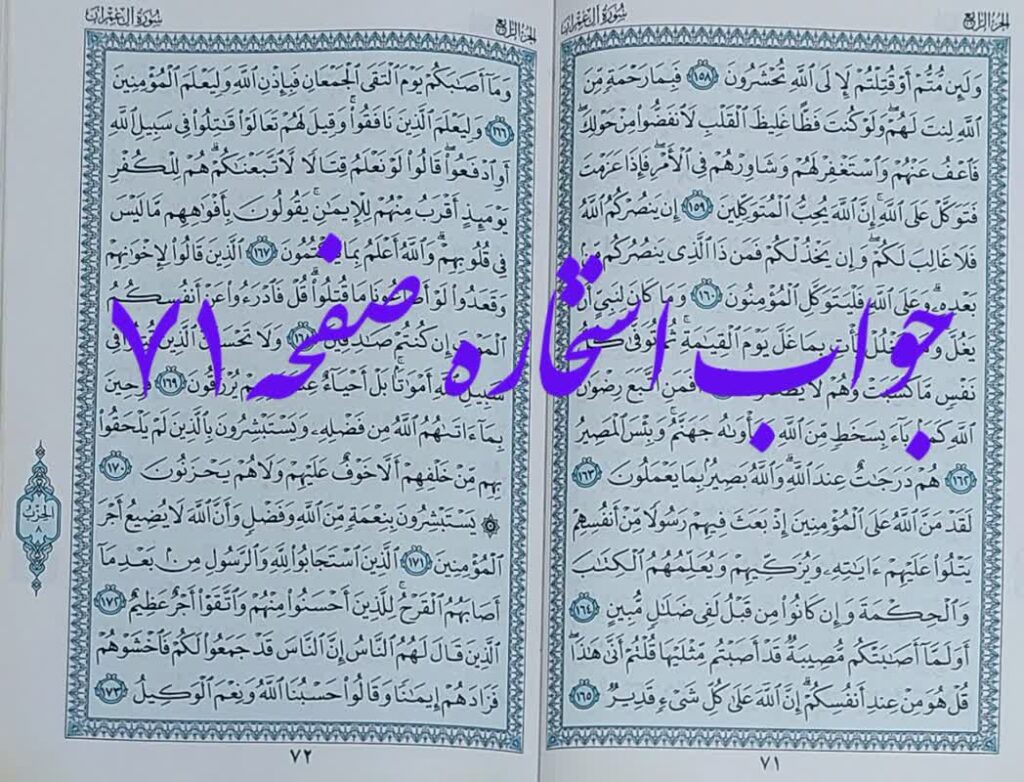 الجزء الرابع
سورة آل عمران
وَلَئِن مُّتُّمْ أَوْ قُتِلْتُمْ لَإِلَى ٱللَّهِ تُحْشَرُونَ ١٥٨ فَبِمَا رَحْمَةٍ مِّنَ
ٱللَّهِ لِنتَ لَهُمْ ۖ وَلَوْ كُنتَ فَظًّا غَلِيظَ ٱلْقَلْبِ لَٱنفَضُّوا۟ مِنْ حَوْلِكَ ۖ
فَٱعْفُ عَنْهُمْ وَٱسْتَغْفِرْ لَهُمْ وَشَاوِرْهُمْ فِى ٱلْأَمْرِ ۖ فَإِذَا عَزَمْتَ
فَتَوَكَّلْ عَلَى ٱللَّهِ ۚ إِنَّ ٱللَّهَ يُحِبُّ ٱلْمُتَوَكِّلِينَ ١٥٩ إِن يَنصُرْكُمُ ٱللَّهُ
فَلَا غَالِبَ لَكُمْ ۖ وَإِن يَخْذُلْكُمْ فَمَن ذَا ٱلَّذِى يَنصُرُكُم مِّنۢ
بَعْدِهِۦ ۗ وَعَلَى ٱللَّهِ فَلْيَتَوَكَّلِ ٱلْمُؤْمِنُونَ ١٦٠ وَمَا كَانَ لِنَبِىٍّ أَن
يَغُلَّ ۚ وَمَن يَغْلُلْ يَأْتِ بِمَا غَلَّ يَوْمَ ٱلْقِيَٰمَةِ ۚ ثُمَّ تُوَفَّىٰ كُلُّ
نَفْسٍ مَّا كَسَبَتْ وَهُمْ لَا يُظْلَمُونَ أَفَمَنِ ٱتَّبَعَ رِضْوَٰنَ
ٱللَّهِ كَمَنۢ بَآءَ بِسَخَطٍ مِّنَ ٱللَّهِ وَمَأْوَىٰهُ جَهَنَّمُ ۚ وَبِئْسَ ٱلْمَصِيرُ
١٦٢ هُمْ دَرَجَٰتٌ عِندَ ٱللَّهِ ۗ وَٱللَّهُ بَصِيرٌۢ بِمَا يَعْمَلُونَ ١٦٣
لَقَدْ مَنَّ ٱللَّهُ عَلَى ٱلْمُؤْمِنِينَ إِذْ بَعَثَ فِيهِمْ رَسُولًا مِّنْ أَنفُسِهِمْ
يَتْلُوا۟ عَلَيْهِمْ ءَايَٰتِهِۦ وَيُزَكِّيهِمْ وَيُعَلِّمُهُمُ ٱلْكِتَٰبَ
وَٱلْحِكْمَةَ وَإِن كَانُوا۟ مِن قَبْلُ لَفِى ضَلَٰلٍ مُّبِينٍ ١٦٤
أَوَلَمَّآ أَصَٰبَتْكُم مُّصِيبَةٌ قَدْ أَصَبْتُم مِّثْلَيْهَا قُلْتُمْ أَنَّىٰ هَٰذَا ۖ
قُلْ هُوَ مِنْ عِندِ أَنفُسِكُمْ ۗ إِنَّ ٱللَّهَ عَلَىٰ كُلِّ شَىْءٍ قَدِيرٌ ١٦٥
٧١
الجزء الرابع
سورة آل عمران
وَمَآ أَصَٰبَكُمْ يَوْمَ ٱلْتَقَى ٱلْجَمْعَانِ فَبِإِذْنِ ٱللَّهِ وَلِيَعْلَمَ ٱلْمُؤْمِنِينَ
١٦٦ وَلِيَعْلَمَ ٱلَّذِينَ نَافَقُوا۟ ۚ وَقِيلَ لَهُمْ تَعَالَوْا۟ قَٰتِلُوا۟ فِى سَبِيلِ ٱللَّهِ
أَوِ ٱدْفَعُوا۟ ۖ قَالُوا۟ لَوْ نَعْلَمُ قِتَالًا لَّٱتَّبَعْنَٰكُمْ ۗ هُمْ لِلْكُفْرِ
يَوْمَئِذٍ أَقْرَبُ مِنْهُمْ لِلْإِيمَٰنِ ۚ يَقُولُونَ بِأَفْوَٰهِهِم مَّا لَيْسَ
فِى قُلُوبِهِمْ ۗ وَٱللَّهُ أَعْلَمُ بِمَا يَكْتُمُونَ ١٦٧ ٱلَّذِينَ قَالُوا۟ لِإِخْوَٰنِهِمْ
وَقَعَدُوا۟ لَوْ أَطَاعُونَا مَا قُتِلُوا۟ ۗ قُلْ فَٱدْرَءُوا۟ عَنْ أَنفُسِكُمُ
ٱلْمَوْتَ إِن كُنتُمْ صَٰدِقِينَ ١٦٨ وَلَا تَحْسَبَنَّ ٱلَّذِينَ قُتِلُوا۟ فِى
سَبِيلِ ٱللَّهِ أَمْوَٰتًۢا ۚ بَلْ أَحْيَآءٌ عِندَ رَبِّهِمْ يُرْزَقُونَ ١٦٩ فَرِحِينَ
بِمَآ ءَاتَىٰهُمُ ٱللَّهُ مِن فَضْلِهِۦ وَيَسْتَبْشِرُونَ بِٱلَّذِينَ لَمْ يَلْحَقُوا۟
بِهِم مِّنْ خَلْفِهِمْ أَلَّا خَوْفٌ عَلَيْهِمْ وَلَا هُمْ يَحْزَنُونَ ١٧٠
۞ يَسْتَبْشِرُونَ بِنِعْمَةٍ مِّنَ ٱللَّهِ وَفَضْلٍ وَأَنَّ ٱللَّهَ لَا يُضِيعُ أَجْرَ
ٱلْمُؤْمِنِينَ ١٧١ ٱلَّذِينَ ٱسْتَجَابُوا۟ لِلَّهِ وَٱلرَّسُولِ مِنۢ بَعْدِ مَآ
أَصَابَهُمُ ٱلْقَرْحُ ۚ لِلَّذِينَ أَحْسَنُوا۟ مِنْهُمْ وَٱتَّقَوْا۟ أَجْرٌ عَظِيمٌ ١٧٢
ٱلَّذِينَ قَالَ لَهُمُ ٱلنَّاسُ إِنَّ ٱلنَّاسَ قَدْ جَمَعُوا۟ لَكُمْ فَٱخْشَوْهُمْ
فَزَادَهُمْ إِيمَٰنًا وَقَالُوا۟ حَسْبُنَا ٱللَّهُ وَنِعْمَ ٱلْوَكِيلُ ١٧٣
٧٢
الحزب
جواب استخاره صفحه ۷۱